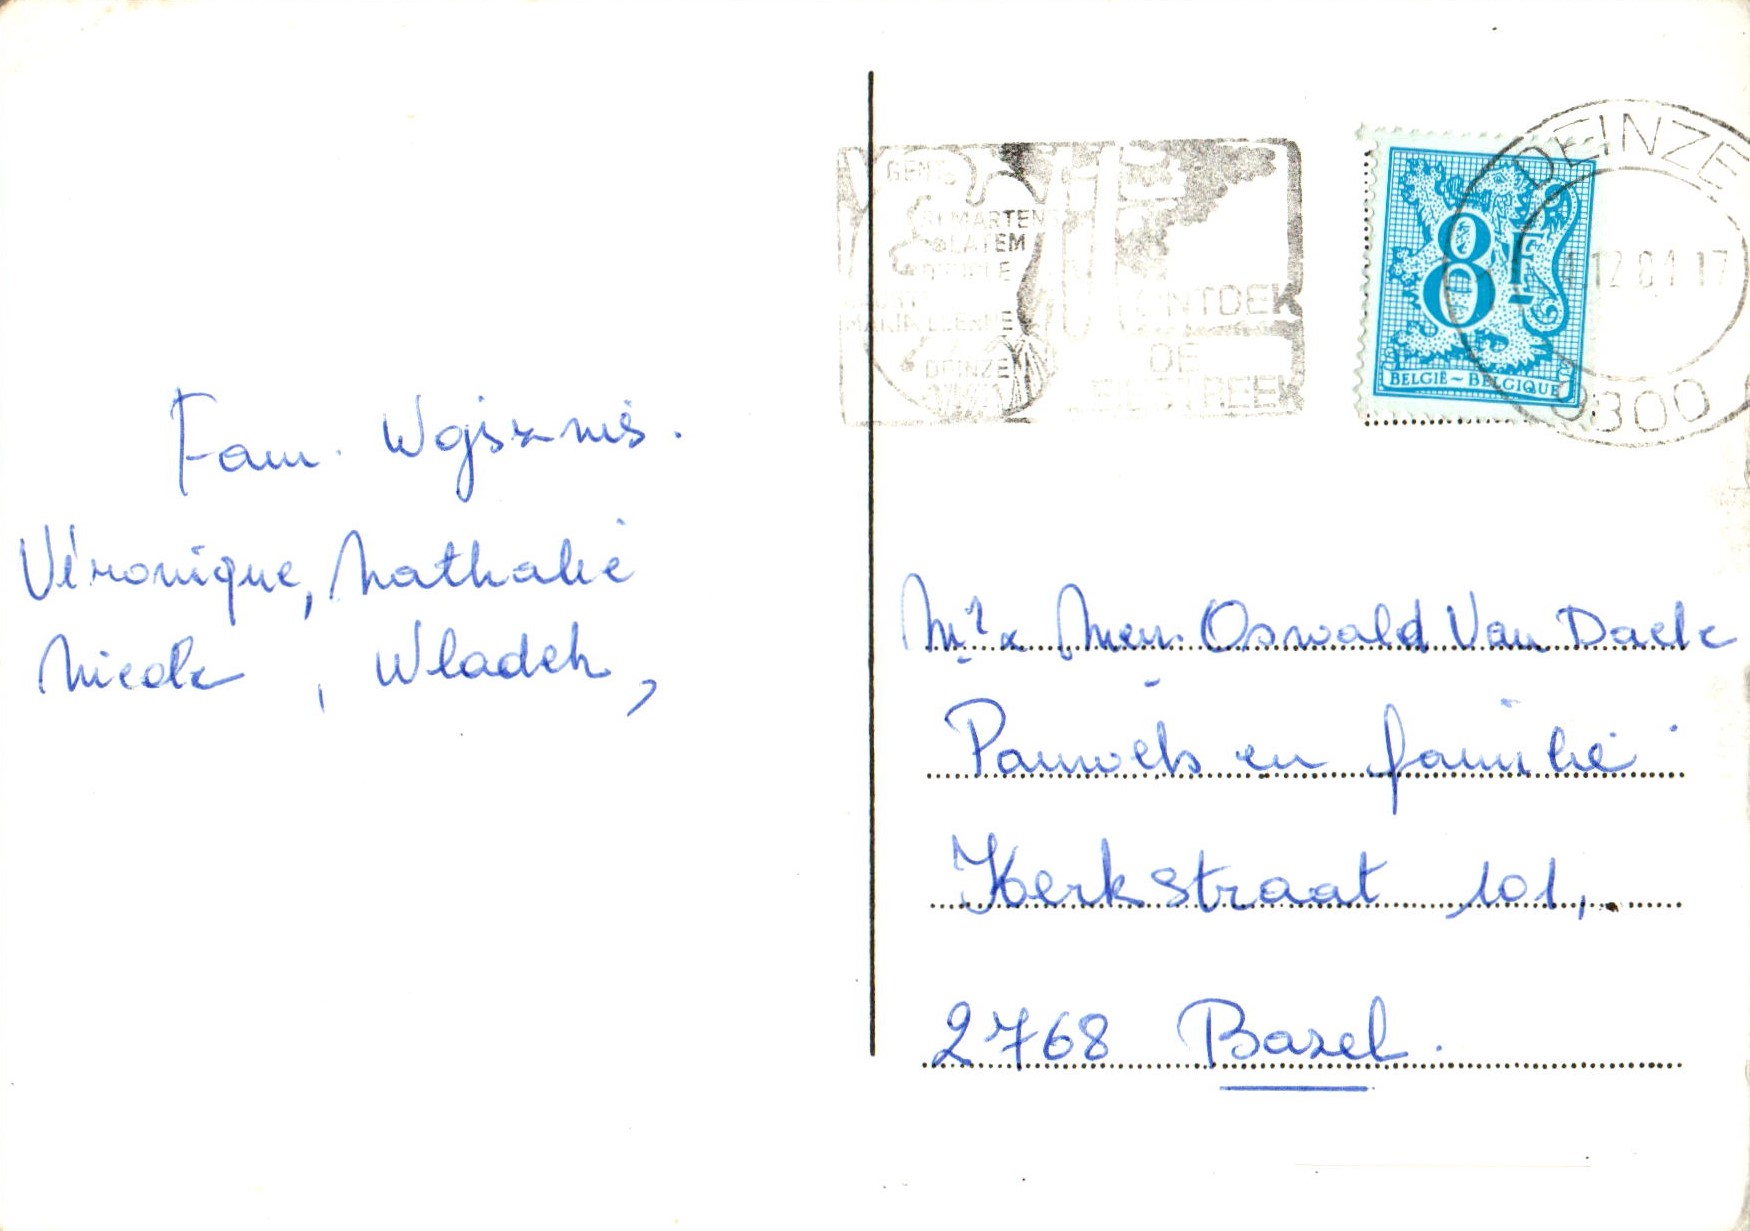 Fam. Wojsznis.
Véronique, Nathalie
Nicole, Wladek,
GENT
ST MARTENS
LATEM
DEURLE
LEERNE
DEINZE
ONTDEK
DE
LEIESTREEK
8F
BELGIË ~ BELGIQUE
DEINZE
12 84 17
9800
Mr & Mevr. Oswald Van Daele
Pauwels en familie
Kerkstraat 101,
2768 Bazel.